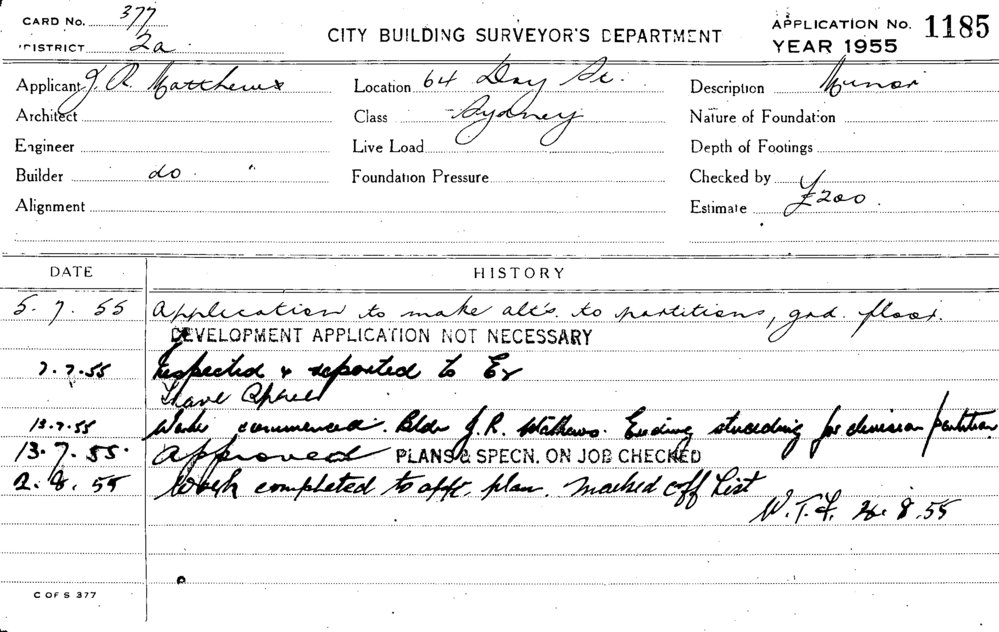 CARD No. 377
DISTRICT 2a
CITY BUILDING SURVEYOR'S DEPARTMENT
APPLICATION No. 1185
YEAR 1955
Applicant J. R. Matthews
Location 64 Day St.
Description Minor
Architect
Class Sydney
Nature of Foundation
Engineer
Live Load
Depth of Footings
Builder do "
Foundation Pressure
Checked by
Alignment
Estimate £200.
DATE HISTORY
5. 7. 55 Application to make alt's. to partitions, grd. floor.
DEVELOPMENT APPLICATION NOT NECESSARY
7. 7. 55 Inspected & reported to Ex
13.7.55 Works commenced. Bldr J. R. Mathews. Ending studding for division partition
13. 7. 55. Approved PLANS & SPECN. ON JOB CHECKED
2. 8. 55 Work completed to appr. plan. Marked off List
8. 55
C OF S 377